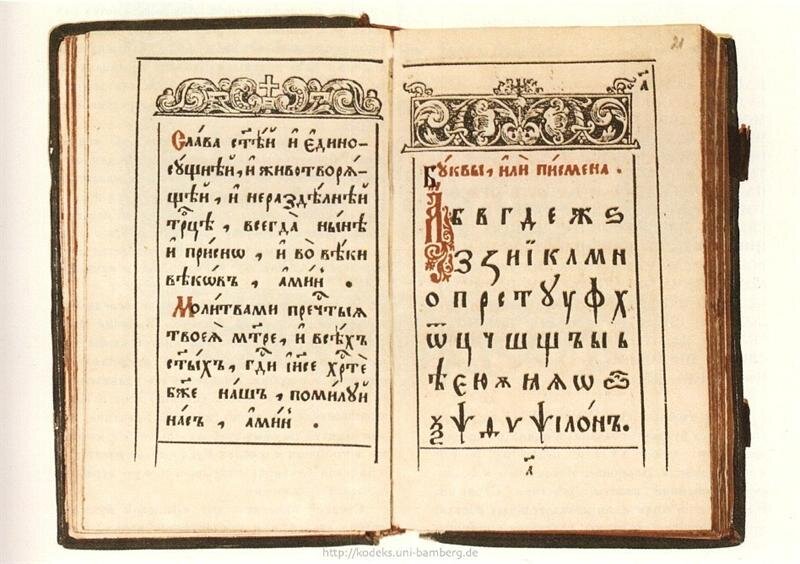 Сла́ва ст҃ѣ́й и҆ є҆дино-
сꙋ́щнѣй, и҆ животворѧ́-
щѣй, и҆ нераздѣ́лнѣй
трⷪ҇цѣ, всегда̀ ны́нѣ
и҆ при́снѡ, и҆ во̀ вѣ́ки
вѣкѡ́въ, а҆ми́нь.
Моли́твами пречⷭ҇тыѧ
твоеѧ̀ мт҃ре, и҆ всѣ́хъ
ст҃ы́хъ, гдⷭ҇и і҆и҃се хрⷭ҇тѐ
бж҃е на́шъ, поми́лꙋй
на́съ, а҆ми́нь.
21
а҃
Бꙋ́квы, и҆лѝ пи́смена.
А б в г д є ж ѕ
З ʒ и ї к л м н
о п р с т ꙋ у ф х
ѿ ц ч ш щ ъ ы ь
ѣ є ю ж ѧ ѡ
ѯ ѱ ѵ ѱіло́нъ.
а҃
http://kodeks.uni-bamberg.de